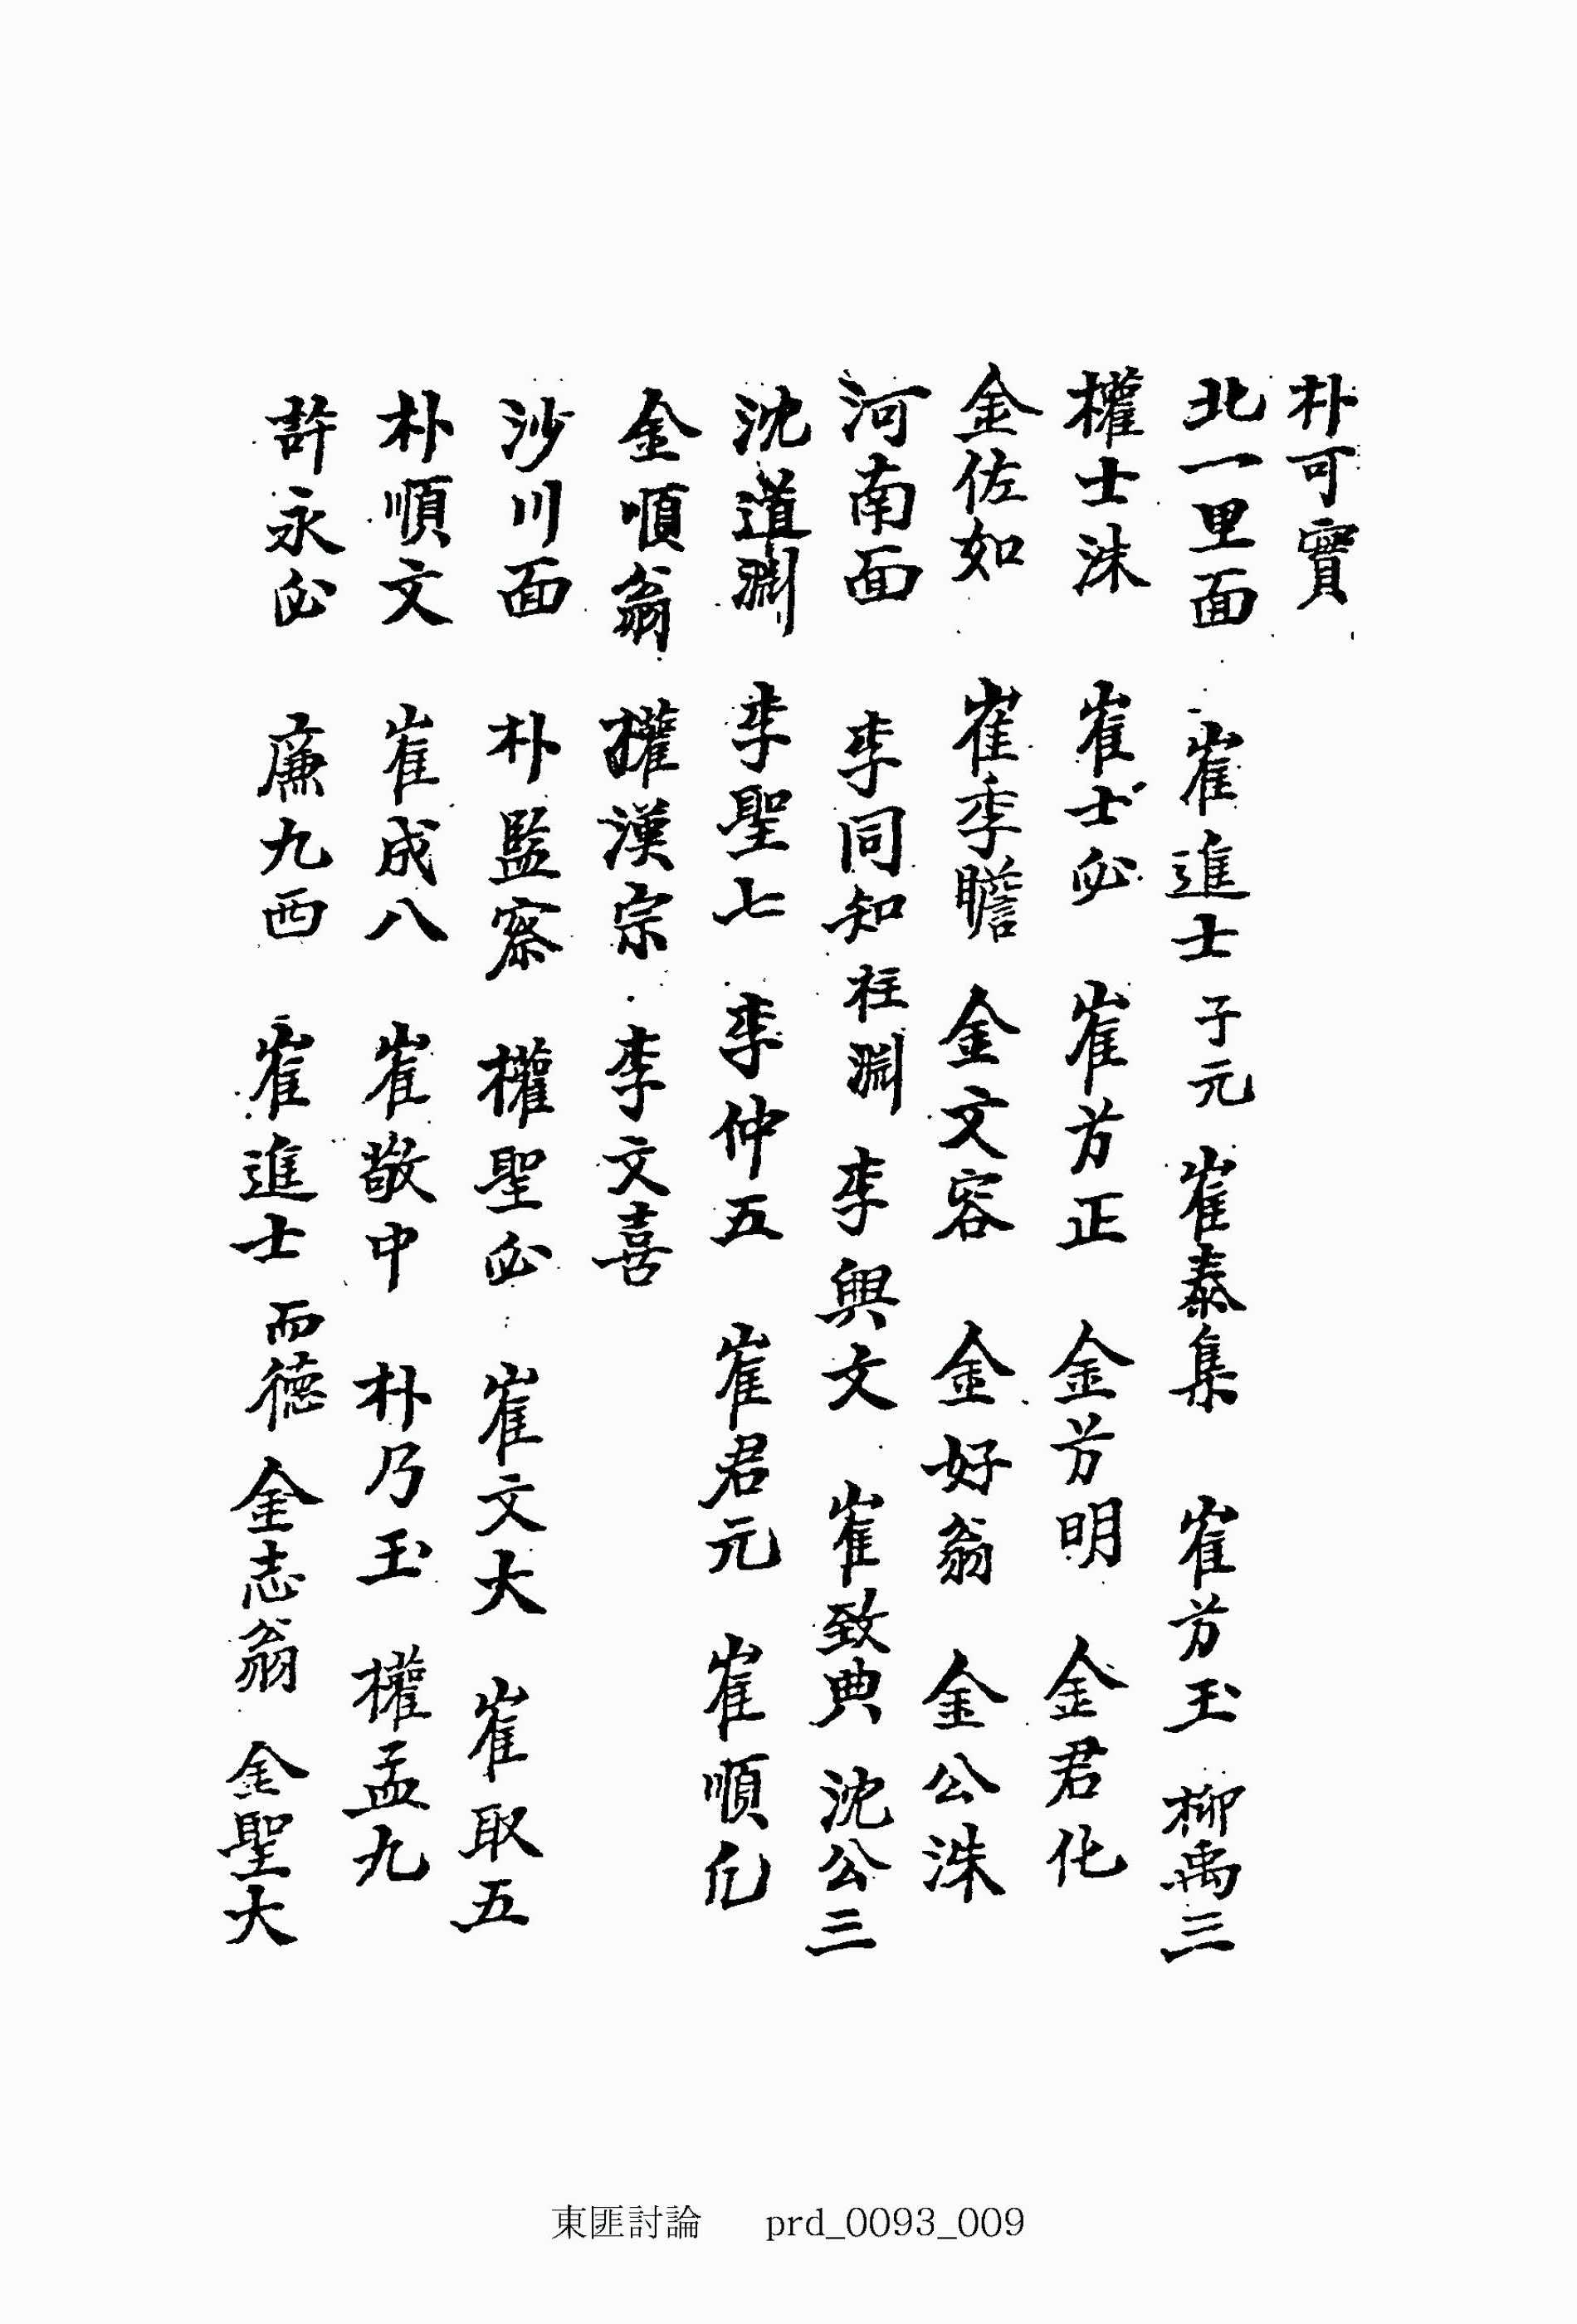 朴可實
北一里面 崔進士 子元 崔泰集 崔芳玉 柳禹三
權士洙 崔士必 崔芳正 金芳明 金君化
金佐如 崔季瞻 金文容 金好翁 金公洙
河南面 李同知 柱淵 李興文 崔致典 沈公三
沈道淵 李聖七 李仲五 崔君元 崔順凡
金順翁 權漢宗 李文喜
沙川面 朴監察 權聖必 崔文大 崔取五
朴順文 崔成八 崔敬中 朴乃玉 權孟九
許永必 廉九西 崔進士 而德 金志翁 金聖大
東匪討論 prd_0093_009